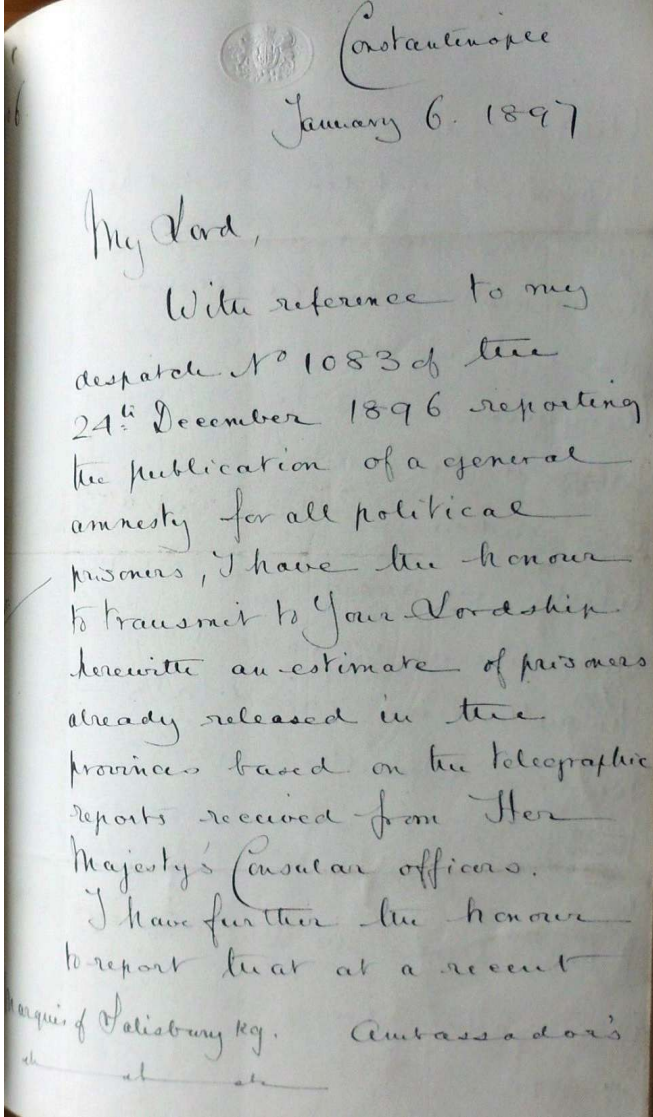 Constantinople
January 6. 1897
My Lord,
With reference to my
despatch No 1083 of the
24th December 1896 reporting
the publication of a general
amnesty for all political
prisoners, I have the honour
to transmit to Your Lordship
herewith an estimate of prisoners
already released in the
provinces based on the telegraphic
reports received from Her
Majesty's Consular officers.
I have further the honour
to report that at a recent
Marquis of Salisbury KG.
Ambassador's